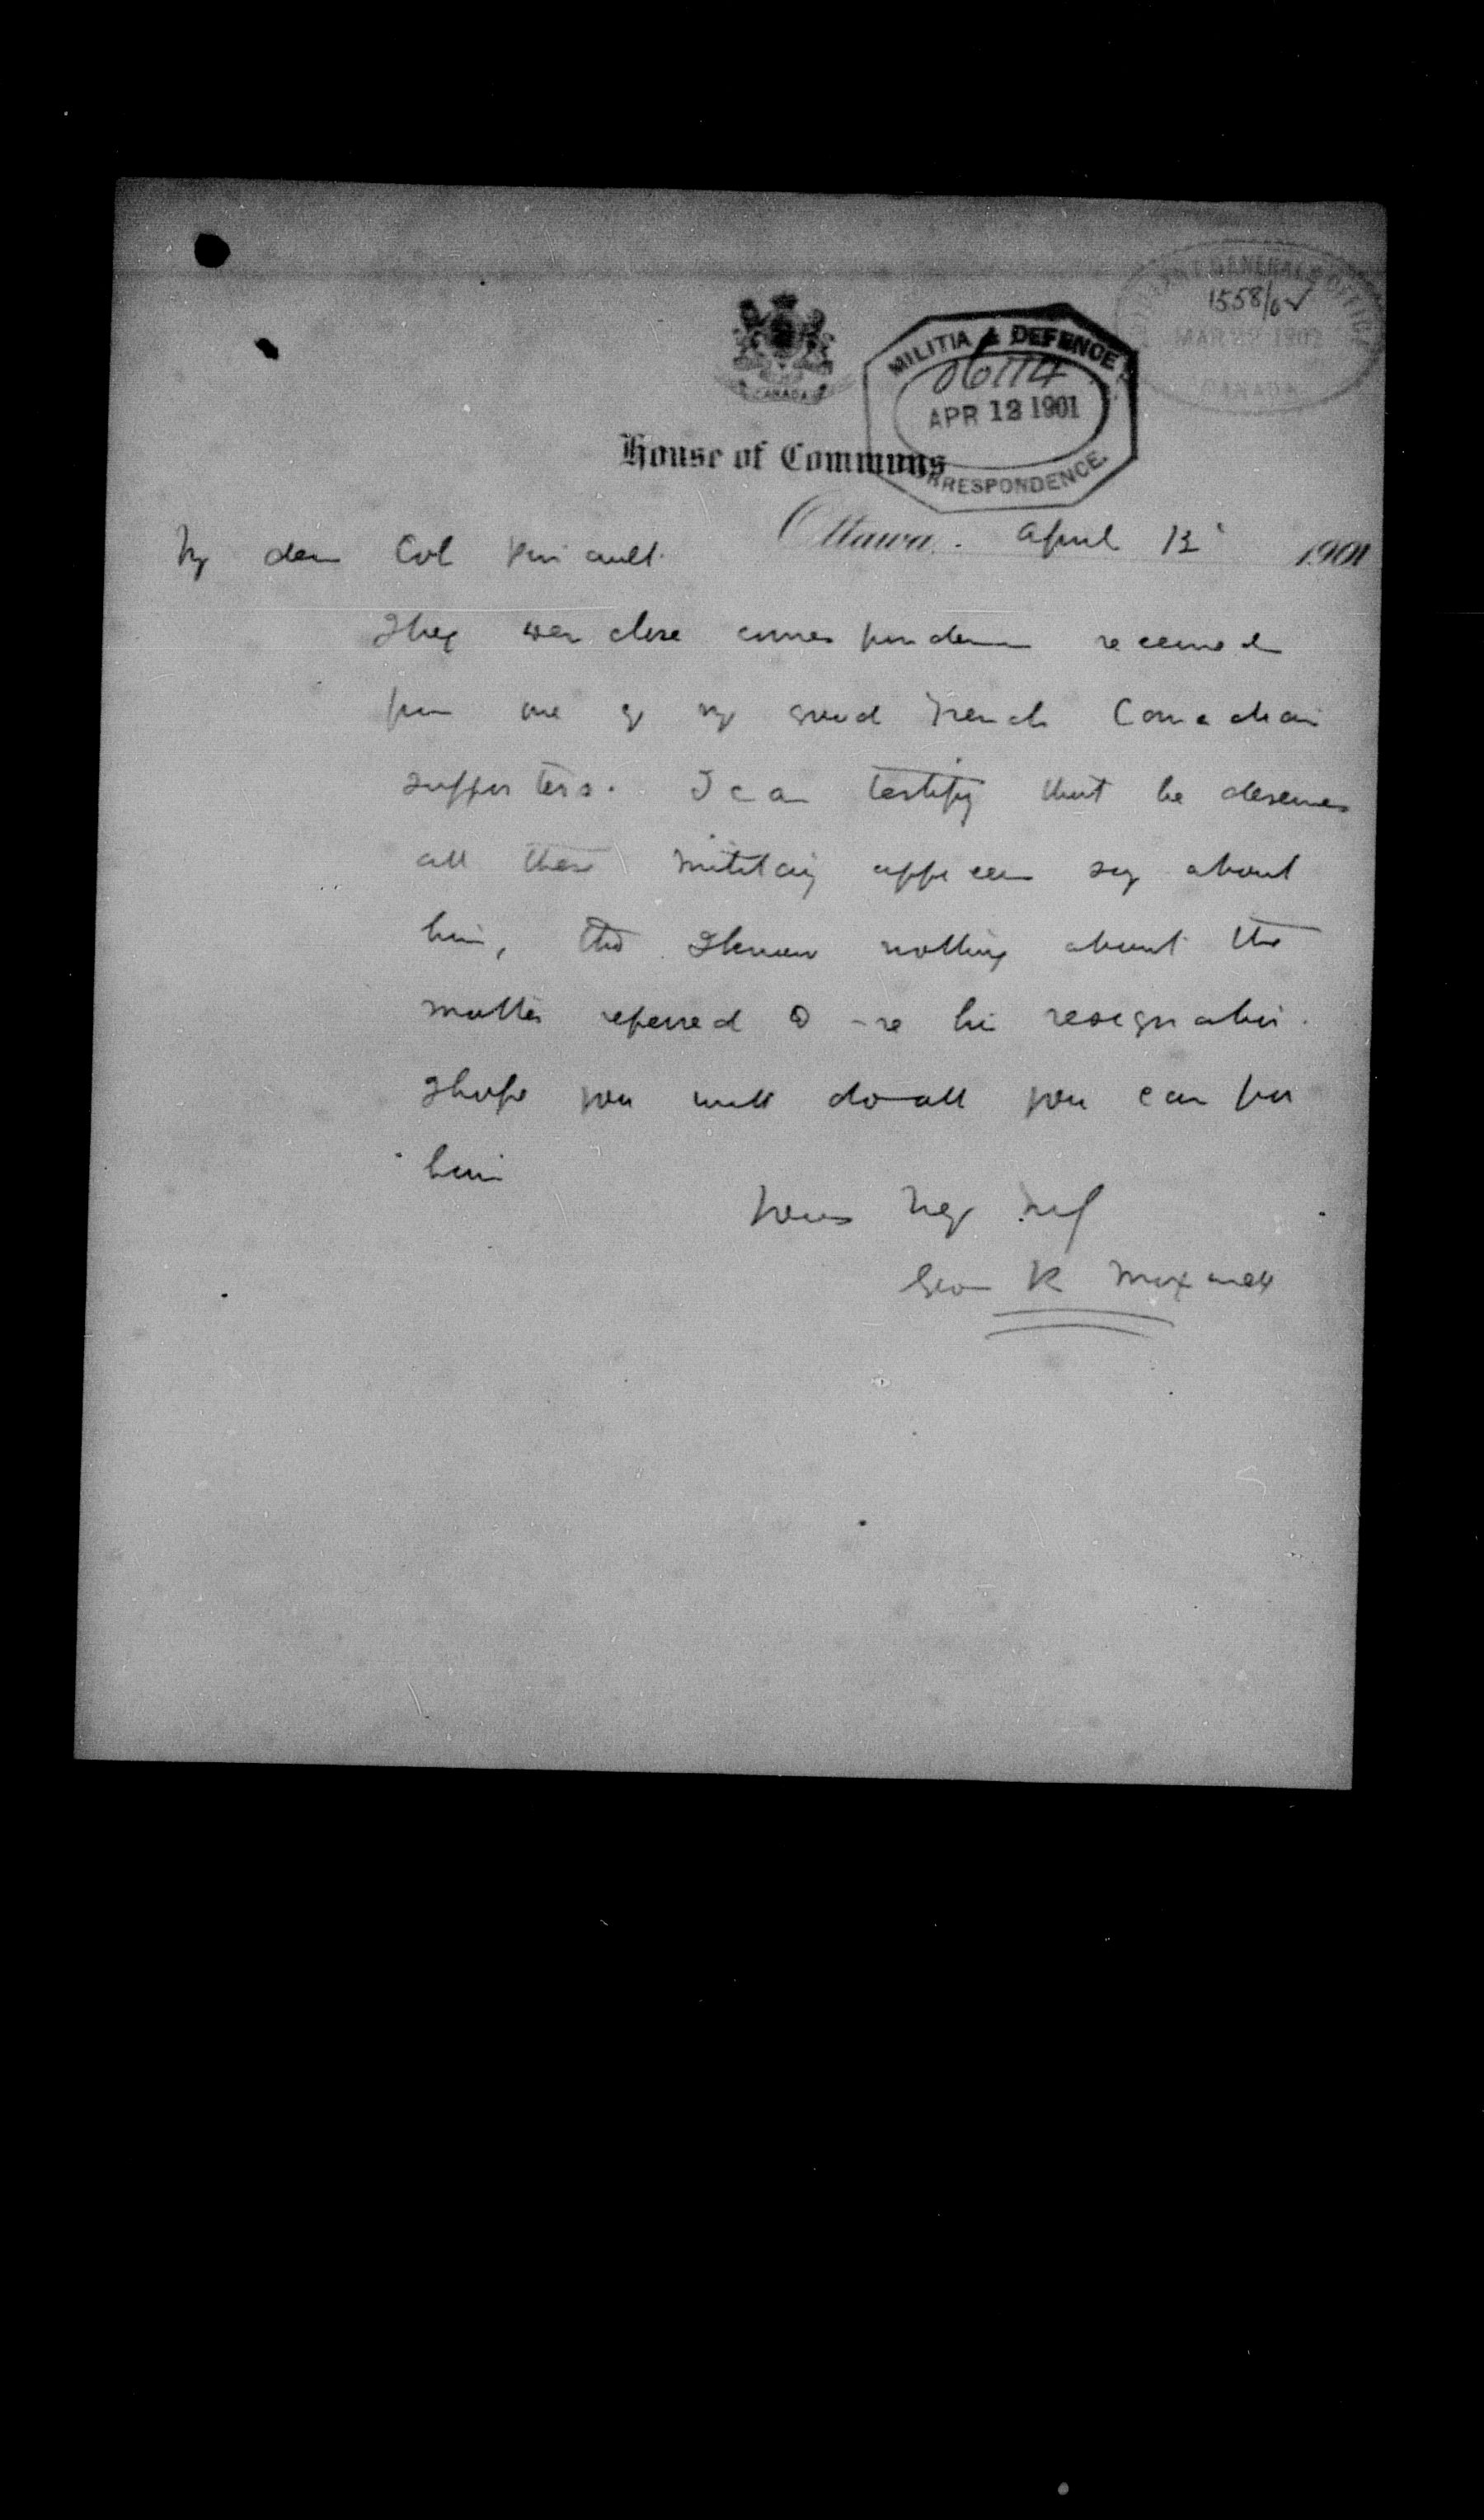 ADJUTANT GENERAL'S OFFICE
1558/02
MAR 22 1902
CANADA
MILITIA & DEFENCE
06114
APR 12 1901
CORRESPONDENCE.
CANADA
House of Commons
Ottawa. April 12 1901
My dear Col Pinault.
I beg to enclose correspondence received
from one of my good French Canadian
supporters. I can testify that he deserves
all these military officers say about
him, tho I know nothing about the
matter referred to - re his resignation.
I hope you will do all you can for
him
Yours
Geo R Maxwell